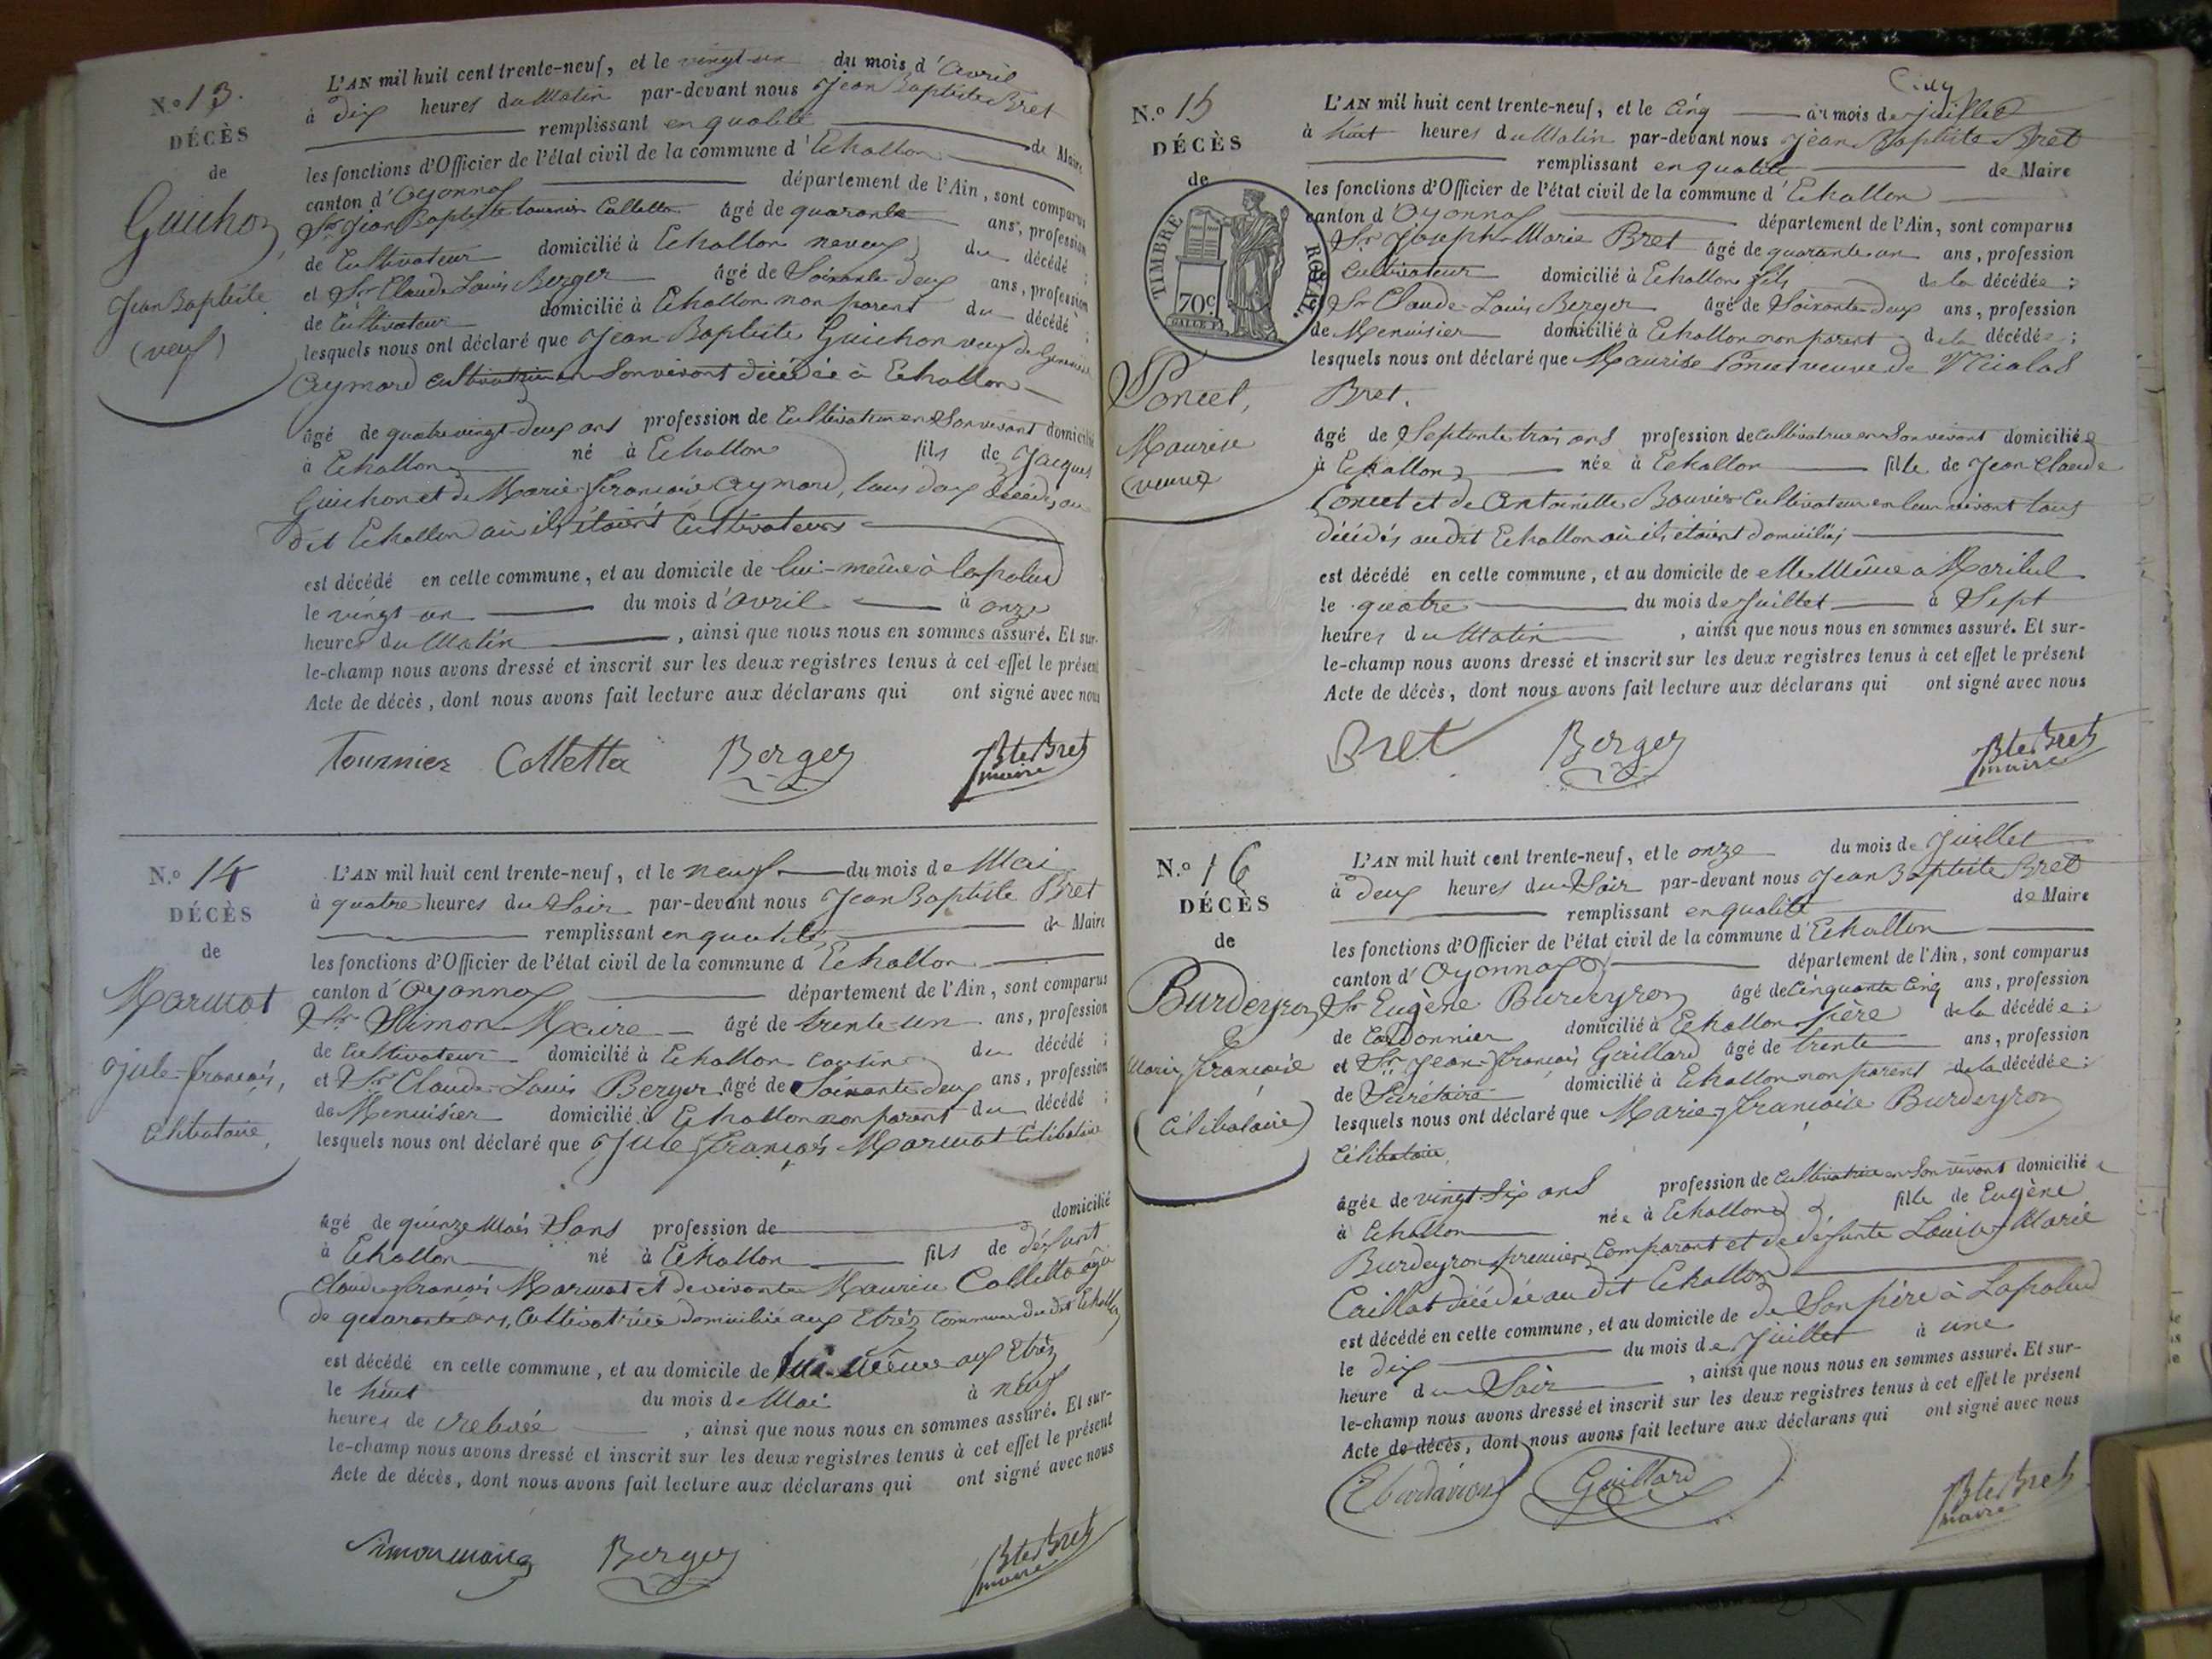 N.o 13.
DÉCÈS
de
Guichon,
Jean Baptiste
(veuf)
L'AN mil huit cent trente-neuf, et le vingt-un du mois d'Avril
à dix heures du Matin par-devant nous Jean Baptiste Bret
remplissant en qualité de Maire
les fonctions d'Officier de l'état civil de la commune d'Echallon
canton d'Oyonnax département de l'Ain, sont comparus
Sr Jean Baptiste tournier Colletta âgé de quarante ans, profession
de Cultivateur domicilié à Echallon neveu du décédé ;
et Sr Claude Louis Berger âgé de Soixante-deux ans, profession
de Cultivateur domicilié à Echallon non parent du décédé ;
lesquels nous ont déclaré que Jean Baptiste Guichon veuf de
Aymard en Son vivant décédée à Echallon
âgé de quatre vingt-deux ans profession de Cultivateur en Son vivant domicilié
à Echallon né à Echallon fils de Jacques
Guichon et de Marie-françoise Aymard, tous deux décédés au
dit Echallon où ils étaient Cultivateurs
est décédé en celle commune, et au domicile de lui-même à lapalud
le vingt-un du mois d'Avril à onze
heures du Matin, ainsi que nous nous en sommes assuré. Et sur-
le-champ nous avons dressé et inscrit sur les deux registres tenus à cet effet le présent
Acte de décès, dont nous avons fait lecture aux déclarans qui ont signé avec nous
Tournier Colletta Berger Bte Bret
maire
N.o 14
DÉCÈS
de
Marmot
Jule-françois,
célibataire,
L'AN mil huit cent trente-neuf, et le neuf du mois de Mai
à quatre heures du Soir par-devant nous Jean Baptiste Bret
remplissant en qualité de Maire
les fonctions d'Officier de l'état civil de la commune d Echallon
canton d'Oyonnax département de l'Ain, sont comparus
Sr Simon Maire âgé de trente-un ans, profession
de Cultivateur domicilié à Echallon cousin du décédé ;
et Sr Claude-Louis Berger âgé de Soixante-deux ans, profession
de Menuisier domicilié à Echallon non parent du décédé ;
lesquels nous ont déclaré que Jule françois Marmot Célibataire
âgé de quinze Mois Sans profession de domicilié
à Echallon né à Echallon fils de défunt
Claude-françois Marmot et de vivante Maurise Colletta âgée
de quarante ans, Cultivatrice domiciliée aux Etréz Commune du dit Echallon
est décédé en celle commune, et au domicile de lui-même aux Etréz
le huit du mois de Mai à neuf
heures de relevée, ainsi que nous nous en sommes assuré. Et sur-
le-champ nous avons dressé et inscrit sur les deux registres tenus à cet effet le présent
Acte de décès, dont nous avons fait lecture aux déclarans qui ont signé avec nous
Simon maire Berger Bte Bret
maire
Cinq
N.o 15
DÉCÈS
de
TIMBRE ROYAL.
70c.
Poncet,
Maurise
(veuve
L'AN mil huit cent trente-neuf, et le Cinq du mois de juillet
à huit heures du Matin par-devant nous Jean Baptiste Bret
remplissant en qualité de Maire
les fonctions d'Officier de l'état civil de la commune d'Echallon
canton d'Oyonnax département de l'Ain, sont comparus
Sr Joseph-Marie Bret âgé de quarante-un ans, profession
Cultivateur domicilié à Echallon fils de la décédée ;
Sr Claude-Louis Berger âgé de Soixante deux ans, profession
de Menuisier domicilié à Echallon non parent de la décédée ;
lesquels nous ont déclaré que Maurise Poncet veuve de Nicolas
Bret.
âgé de Septante trois ans profession de cultivatrice en Son vivant domiciliée
à Echallon née à Echallon fille de Jean Claude
Poncet et de Antoinette Bouvier Cultivateur en leur vivant tous
décédés audit Echallon où ils étaient domiciliés
est décédé en celle commune, et au domicile de elle Même a
le quatre du mois de Juillet à Sept
heures du Matin, ainsi que nous nous en sommes assuré. Et sur-
le-champ nous avons dressé et inscrit sur les deux registres tenus à cet effet le présent
Acte de décès, dont nous avons fait lecture aux déclarans qui ont signé avec nous
Bret Berger Bte Bret
maire
N.o 16
DÉCÈS
de
Burdeyron
Marie françoise
(Célibataire)
L'AN mil huit cent trente-neuf, et le onze du mois de Juillet
à deux heures du Soir par-devant nous Jean Baptiste Bret
remplissant en qualité de Maire
les fonctions d'Officier de l'état civil de la commune d'Echallon
canton d'Oyonnax département de l'Ain, sont comparus
Sr Eugène Burdeyron âgé de Cinquante Cinq ans, profession
de Cordonnier domicilié à Echallon père de la décédée ;
et Sr Jean-françois Gaillard âgé de trente ans, profession
de Secrétaire domicilié à Echallon non parent de la décédée ;
lesquels nous ont déclaré que Marie-françoise Burdeyron
Célibataire,
âgée de vingt Six ans profession de Cultivatrice en Son vivant domiciliée
à Echallon née à Echallon fille de Eugène
Burdeyron premier Comparant et de défunte Louise-Marie
Caillat décédée au dit Echallon
est décédé en celle commune, et au domicile de de Son père à Lapalud
le dix du mois de Juillet à une
heure du Soir, ainsi que nous nous en sommes assuré. Et sur-
le-champ nous avons dressé et inscrit sur les deux registres tenus à cet effet le présent
Acte de décès, dont nous avons fait lecture aux déclarans qui ont signé avec nous
Gaillard Bte Bret
maire